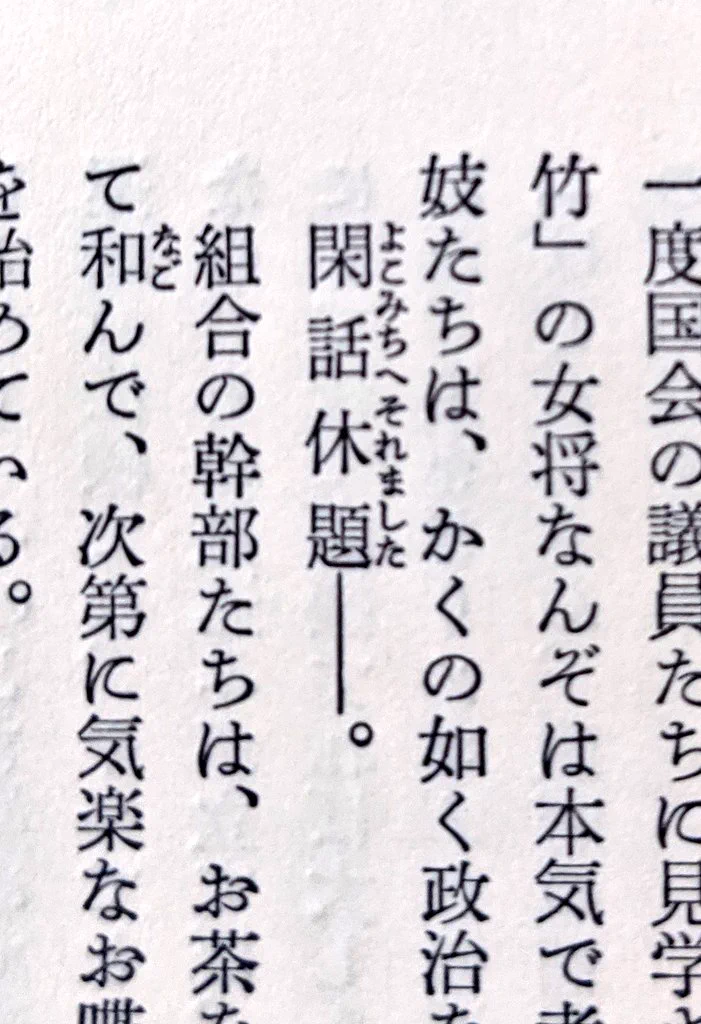 一度国会の議員たちに見学
竹」の女将なんぞは本気で
妓たちは、かくの如く政治
よこみちへそれました
閑話休題――。
組合の幹部たちは、お茶
なご
て和んで、次第に気楽なお喋
を始めている。